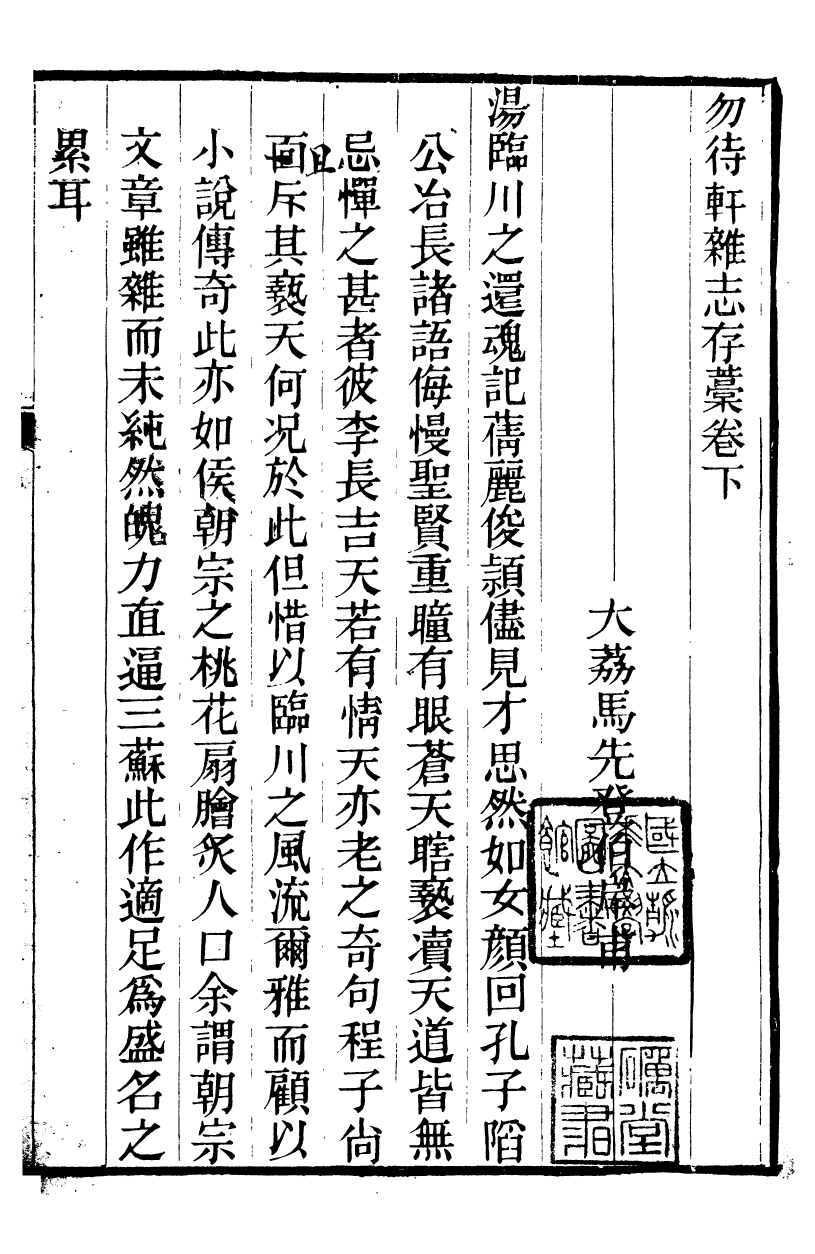 勿待軒雜志存藁卷下
大荔馬先登伯岸甫
湯臨川之還魂記蒨麗俊穎儘見才思然如女顏回孔子陷
公冶長諸語侮慢聖賢重瞳有眼蒼天瞎褻凟天道皆無
忌憚之甚者彼李長吉天若有情天亦老之奇句程子尙
且面斥其褻天何况於此但惜以臨川之風流爾雅而顧以
小說傳奇此亦如侯朝宗之桃花扇膾炙人口余謂朝宗
文章雖雜而未純然魄力直逼三蘇此作適足爲盛名之
累耳
藏書